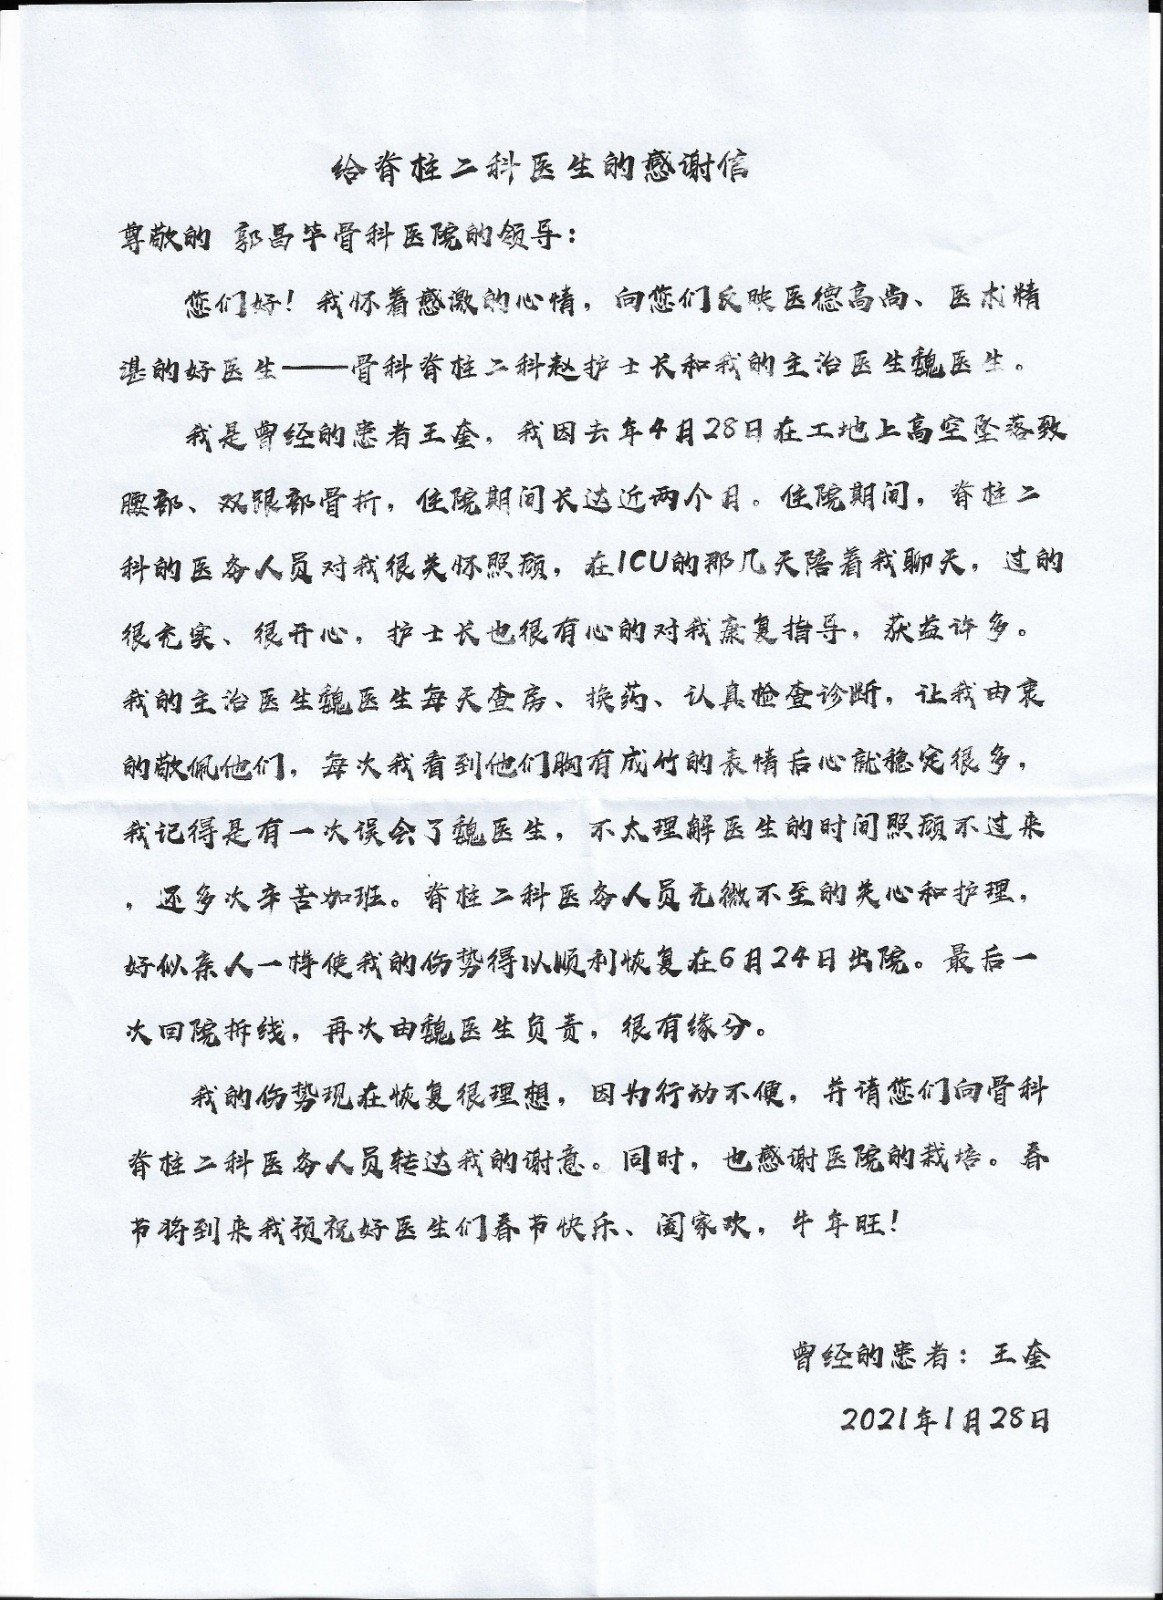 给脊柱二科医生的感谢信
尊敬的 郭昌毕骨科医院的领导：
您们好！我怀着感激的心情，向您们反映医德高尚、医术精
湛的好医生——骨科脊柱二科赵护士长和我的主治医生魏医生。
我是曾经的患者王奎，我因去年4月28日在工地上高空坠落致
腰部、双跟部骨折，住院期间长达近两个月。住院期间，脊柱二
科的医务人员对我很关怀照顾，在ICU的那几天陪着我聊天，过的
很充实、很开心，护士长也很有心的对我康复指导，获益许多。
我的主治医生魏医生每天查房、换药、认真检查诊断，让我由衷
的敬佩他们，每次我看到他们胸有成竹的表情后心就稳定很多，
我记得是有一次误会了魏医生，不太理解医生的时间照顾不过来
，还多次辛苦加班。脊柱二科医务人员无微不至的关心和护理，
好似亲人一样使我的伤势得以顺利恢复在6月24日出院。最后一
次回院拆线，再次由魏医生负责，很有缘分。
我的伤势现在恢复很理想，因为行动不便，并请您们向骨科
脊柱二科医务人员转达我的谢意。同时，也感谢医院的栽培。春
节将到来我预祝好医生们春节快乐、阖家欢，牛年旺！
曾经的患者：王奎
2021年1月28日